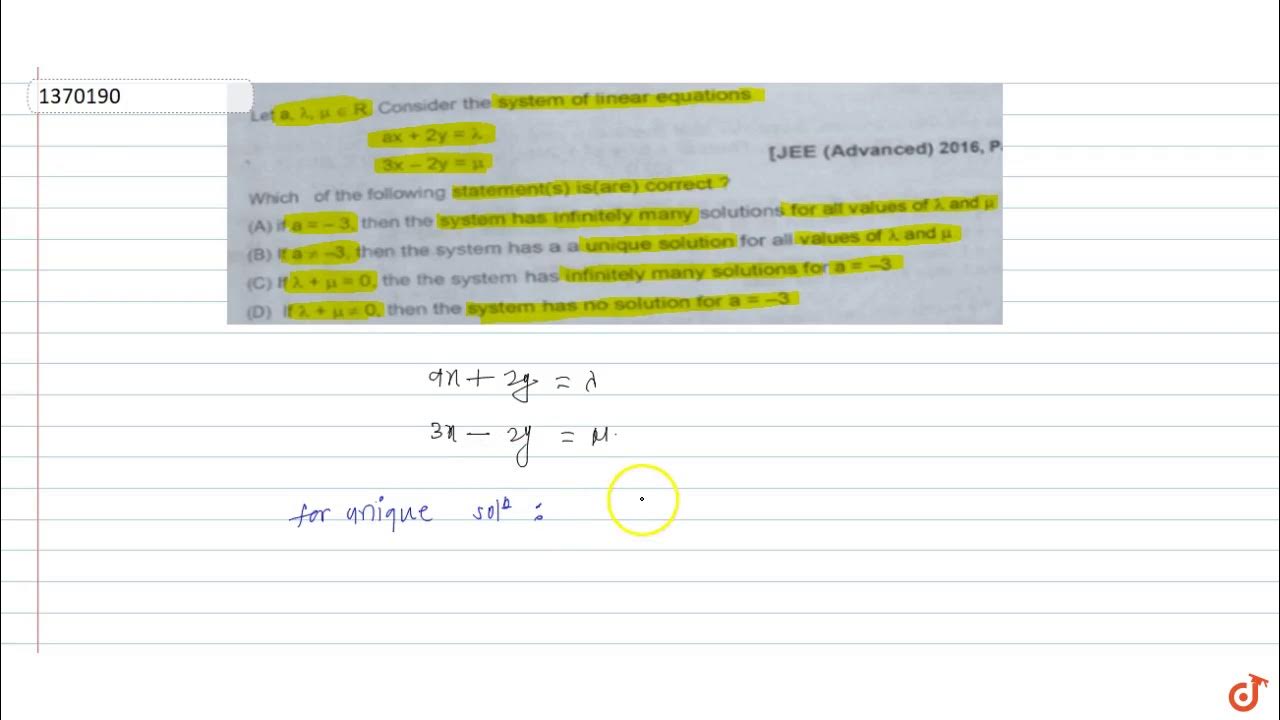 1370190
Let a, λ, μ ∈ R. Consider the system of linear equations
ax + 2y = λ
3x – 2y = μ
[JEE (Advanced) 2016, P
Which of the following statement(s) is(are) correct ?
(A) if a = – 3, then the system has infinitely many solutions for all values of λ and μ
(B) If a ≠ –3, then the system has a a unique solution for all values of λ and μ
(C) If λ + μ = 0, the the system has infinitely many solutions for a = –3
(D) If λ + μ ≠ 0, then the system has no solution for a = –3
ax + 2y = λ
3x – 2y = μ.
for unique solⁿ :